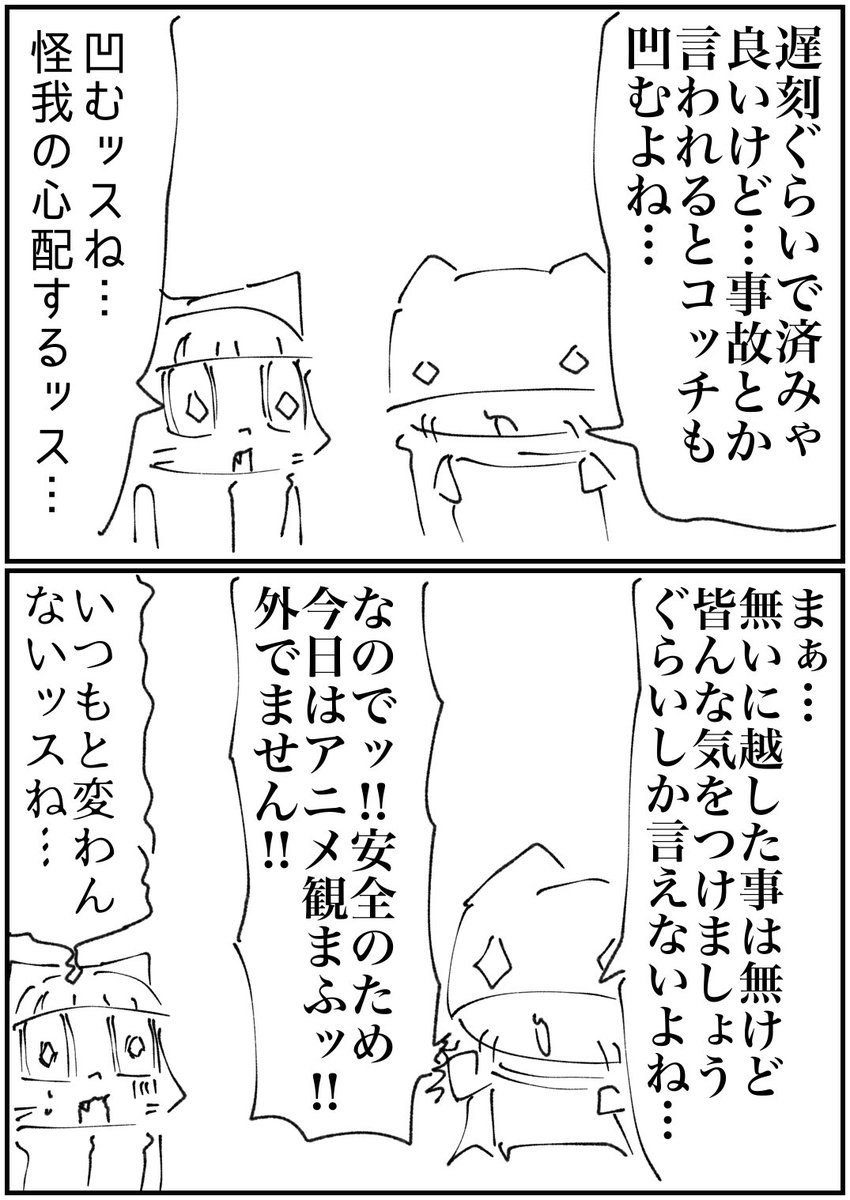 遅刻ぐらいで済みゃ
良いけど…事故とか
言われるとコッチも
凹むよね…
凹むッスね…
怪我の心配するッス…
まぁ…
無いに越した事は無けど
皆んな気をつけましょう
ぐらいしか言えないよね…
なのでッ!!安全のため
今日はアニメ観まふッ!!
外でません!!
いつもと変わん
ないッスね…